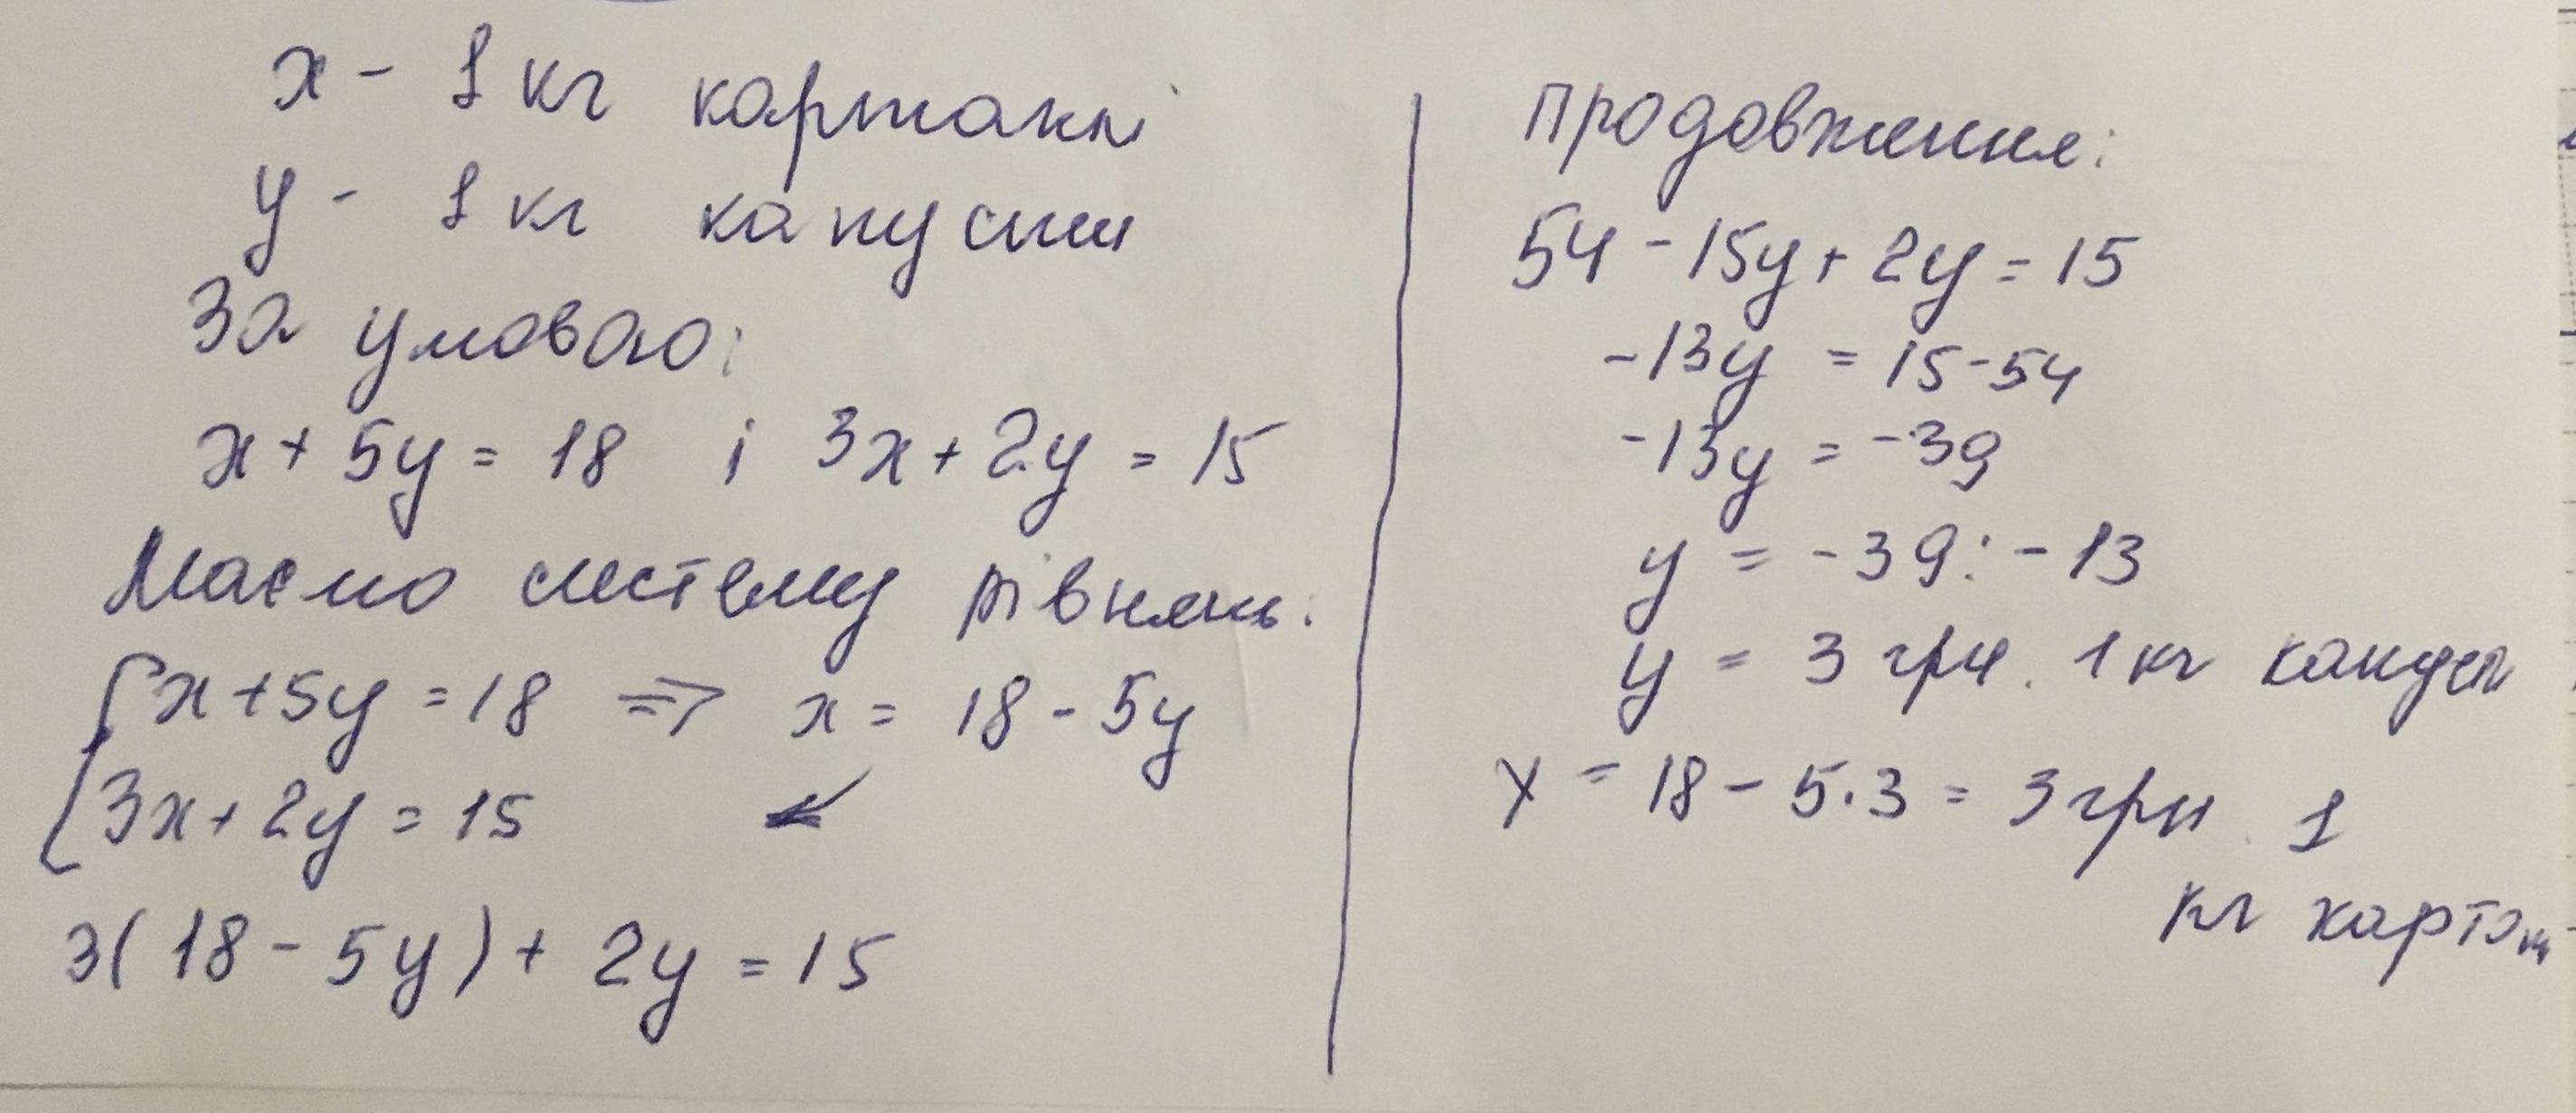 x - 1 кг картоплі
y - 1 кг капусти
За умовою:
x + 5y = 18 і 3x + 2y = 15
Маємо систему рівнянь:
{ x + 5y = 18 => x = 18 - 5y
3x + 2y = 15 ↙
3(18 - 5y) + 2y = 15
Продовження:
54 - 15y + 2y = 15
-13y = 15 - 54
-13y = -39
y = -39 : -13
y = 3 грн. 1 кг капуст
x = 18 - 5·3 = 3 грн. 1
кг картоп